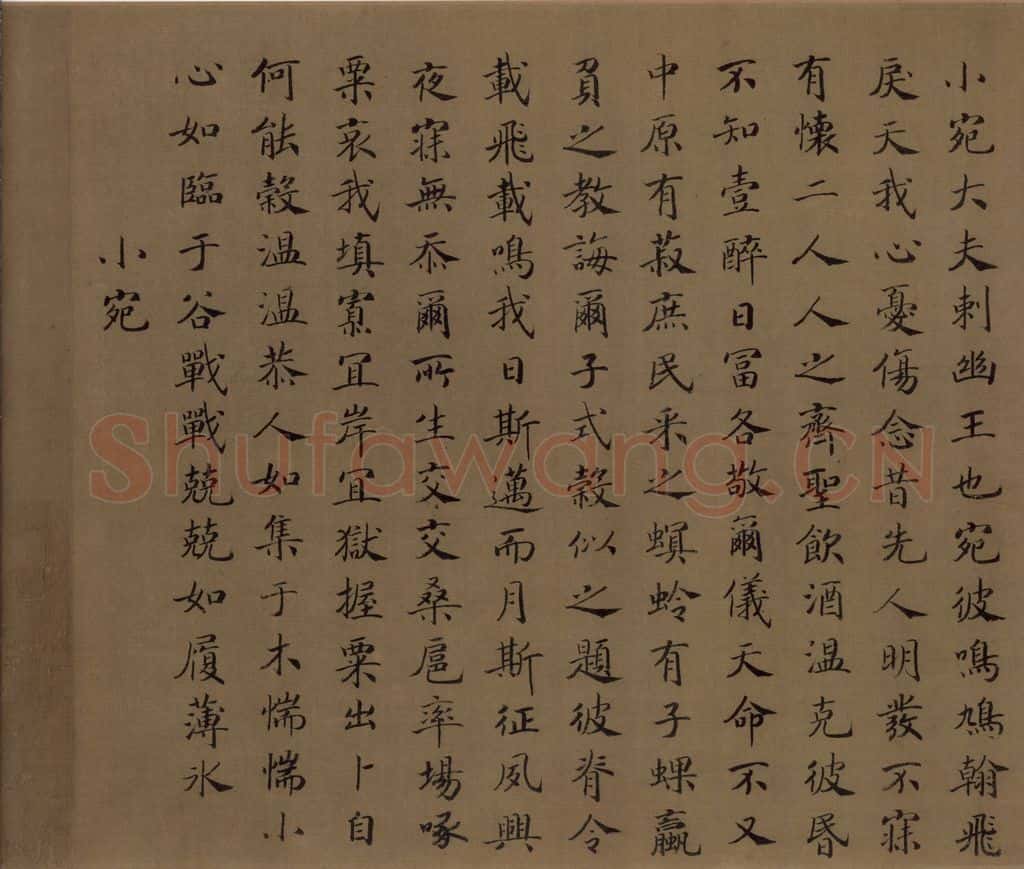 小宛大夫刺幽王也宛彼鳴鳩翰飛
戾天我心憂傷念昔先人明發不寐
有懷二人人之齊聖飲酒温克彼昬
不知壹醉日冨各敬爾儀天命不又
中原有菽庶民采之螟蛉有子蜾蠃
負之教誨爾子式穀似之題彼脊令
載飛載鳴我日斯邁而月斯征夙興
夜寐無忝爾所生交交桑扈率場啄
粟哀我填寡冝岸冝獄握粟出卜自
何能穀温温恭人如集于木惴惴小
心如臨于谷戰戰兢兢如履薄氷
小宛
Shufawang.CN